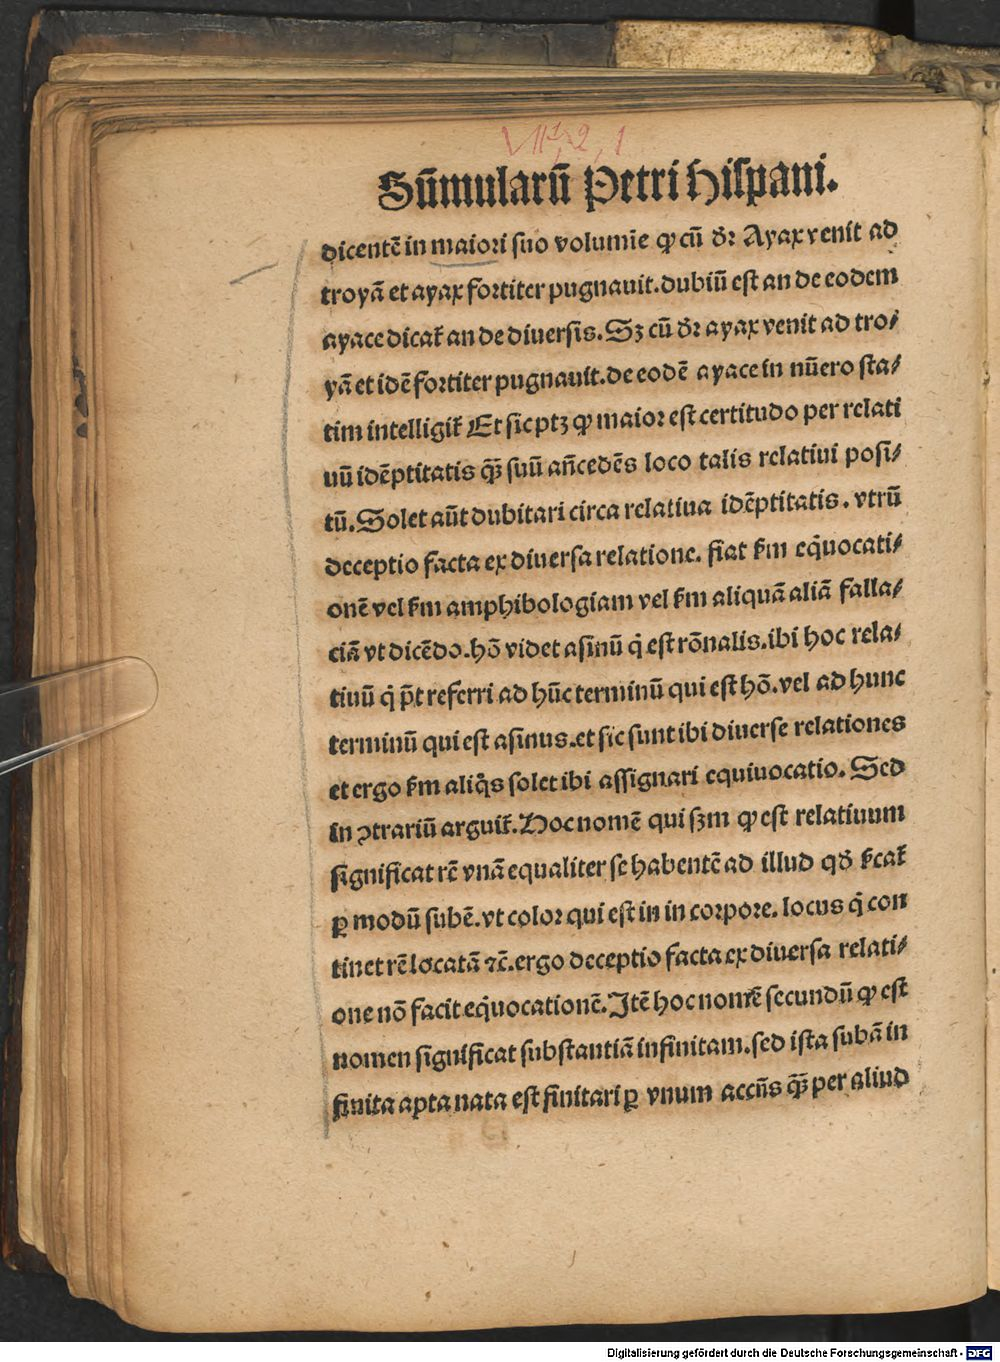 VII, 2, 1
Sūmularū Petri Hispani.
dicentē in maiori suo volumīe ꝙ cū dr̄ Ayax venit ad
troyā et ayax fortiter pugnauit. dubiū est an de eodem
ayace dicat̄ an de diuersis. Sꝫ cū dr̄ ayax venit ad tro⸗
yā et idē fortiter pugnauit. de eodē ayace in nūero sta⸗
tim intelligit̄ Et sic ptꝫ ꝙ maior est certitudo per relati
uū idēptitatis q̄ꝫ suū an̄cedēs loco talis relatiui posi⸗
tū. Solet aūt dubitari circa relatiua idēptitatis. vtrū
deceptio facta ex diuersa relatione. fiat ẜm eq̇uocati⸗
onē vel ẜm amphibologiam vel ẜm aliquā aliā falla⸗
ciā vt dicēdo. hō videt asinū q̇ est rōnalis. ibi hoc rela⸗
tiuū q̇ p̄t referri ad hūc terminū qui est hō. vel ad hunc
terminū qui est asinus. et sic sunt ibi diuerse relationes
et ergo ẜm aliq̇s solet ibi assignari equiuocatio. Sed
in ꝯtrariū arguit̄. Hoc nomē qui sꝫm ꝙ est relatiuum
significat rē vnā equaliter se habentē ad illud qd̄ ẜcat̄
ꝑ modū subē. vt color qui est in in corpore. locus q̇ con
tinet rē locatā ⁊c̄. ergo deceptio facta ex diuersa relati⸗
one nō facit eq̇uocationē. Itē hoc nomē secundū ꝙ est
nomen significat substantiā infinitam. sed ista subā in
finita apta nata est finitari ꝑ vnum accn̄s q̄ꝫ per aliud
Digitalisierung gefördert durch die Deutsche Forschungsgemeinschaft - DFG